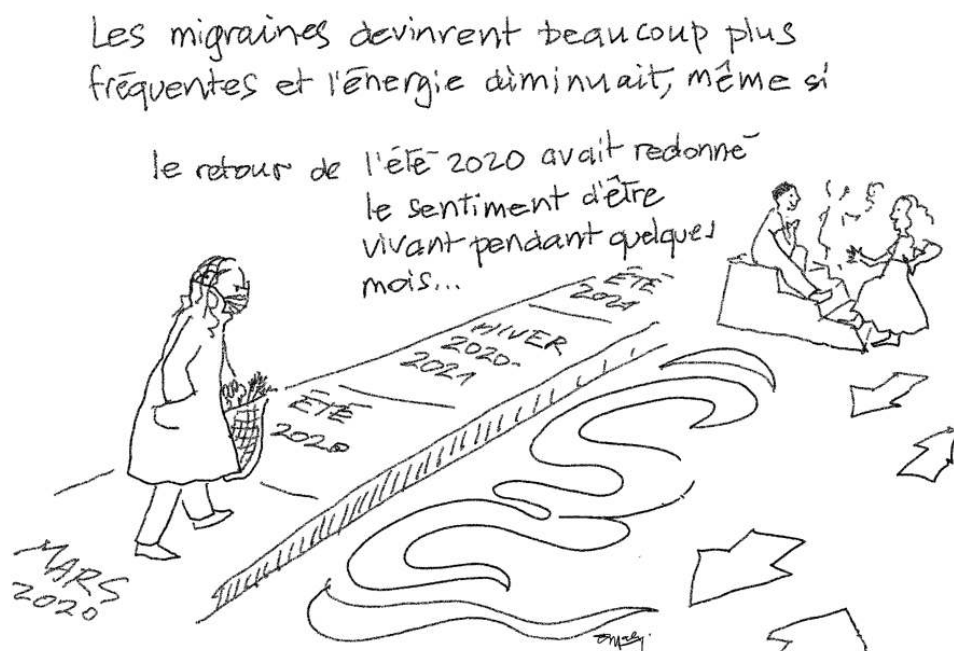 Les migraines devinrent beaucoup plus
fréquentes et l'énergie diminuait, même si
le retour de l'été 2020 avait redonné
le sentiment d'être
vivant pendant quelques
mois...
ÉTÉ
2021
HIVER
2020-
2021
ÉTÉ
2020
MARS
2020